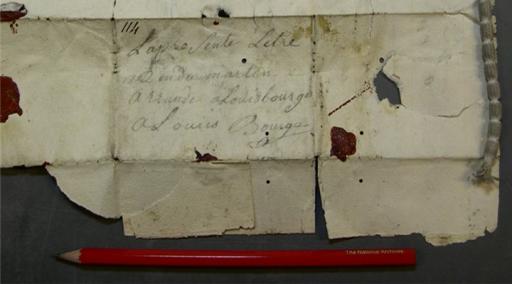 114
Lapresente Letre
martin
a rrande a Louisbourge
a Louis Bourge
The National Archives